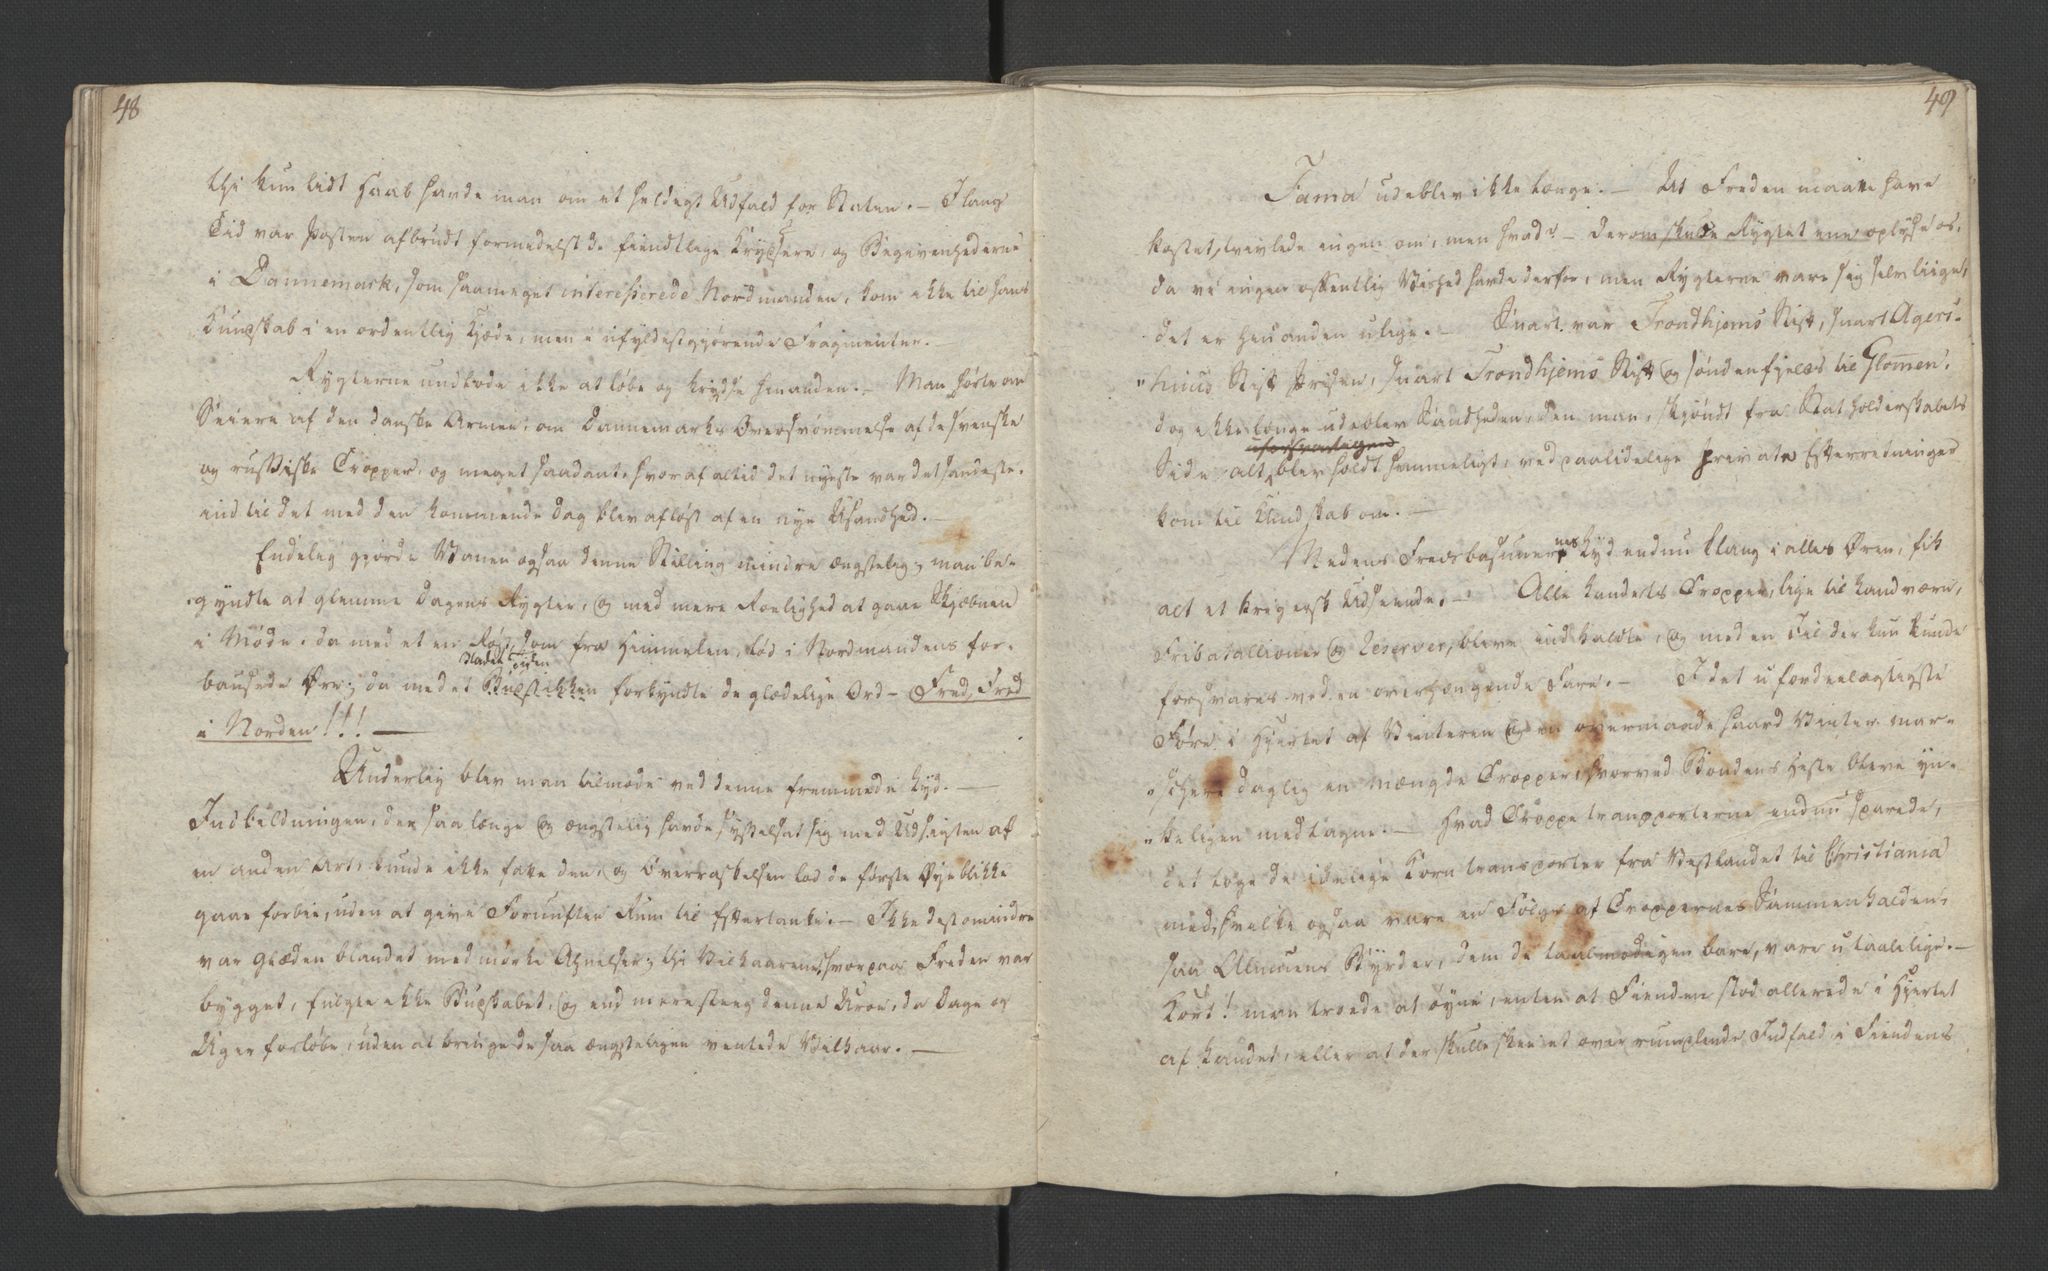 48
thi kun lidt Haab havde man om et heldigt Udfald for Staten. — I lang
Tid var Posten afbrudt formedelst de fiendtlige Krydsere, og Begivenhederne
i Dannemark, som saameget interesserede Nordmanden, kom ikke til hans
Kundskab i en ordentlig Kjæde, men i ufyldestgjørende Fragmenter. —
Rygterne undlode ikke at løbe og krydse hinanden. — Man hørte om
Seiere af den danske Armee, om Dannemarks Oversvømmelse af de svenske
og russiske Tropper, og meget saadant, hvoraf altid det nyeste var det sandeste,
indtil det med den kommende Dag blev afløst af en nye Usandhed. —
Endelig gjorde Vanen ogsaa denne Stilling mindre ængstelig; man be-
gyndte at glemme Dagens Rygter, og med mere Roelighed at gaae Skjæbnen
i Møde, da med et en Røst, som fra Himmelen, lød i Nordmandens for-
bausede Øre; da med et Budstikken forkyndte de glædelige Ord – Fred, Fred
i Norden!!! —
Underlig blev man tilmode ved denne fremmede Lyd. —
Indbildningen, der saa længe og ængstelig havde sysselsat sig med Udsigten af
en anden Art, kunde ikke fatte den, og Overraskelsen lod de første Øyeblikke
gaae forbie, uden at give Fornuften Rum til Eftertanke. — Ikke destomindre
var Glæden blandet med mørke Ahnelser; thi Vilkaarene, hvorpaa Freden var
bygget, fulgte ikke Budskabet, og end mere steeg denne Uroe, da Dage og
Uger forløbe, uden at bringe de saa ængsteligen ventede Vilkaar. —
49
Fama udeblev ikke længe. — At Freden maatte have
kostet, tvivlede ingen om, men hvad? — Derom skulde Rygtet ene oplyse os,
da vi ingen offentlig Vished havde derfor, men Rygterne vare sig selv liige,
det er hinanden ulige. — Snart var Trondhjems Stift, snart Agers-
"huus Stift Prisen, snart Trondhjems Stift og søndenfjelds til Glomen.
dog ikke længe udeblev Sandheden, den man, skjøndt fra Statholderskabets
Side alt blev holdt hemmeligt, ved paalidelige private Efterretninger
kom til Kundskab om. —
Medens Fredsbasunernes Lyd endnu klang i alles Øren, fik
alt et krigersk Udseende, — Alle Landets Tropper, lige til Landværn,
Fribatallioner og Reserver, bleve indkaldte, og med en Iil der kun kunde
forsvares ved en overhængende Fare. — I det ufordeelagtigste
Føre, i Hjertet af Vinteren og en overmaade haard Vinter mar-
"scherede daglig en Mængde Tropper, hvorved Bondens Heste bleve yn-
"keligen medtagne. — Hvad Troppetransporterne endnu sparede,
det toge de idelige Korntransporter fra Vestlandet til Christiania
med, hvilke ogsaa vare en Følge af Troppernes Sammenholden,
saa Almuens Byrder, dem de taalmodigen bare, vare utaalelige. —
Kort! man troede at øyne, enten at Fienden stod allerede i Hjertet
af Landet, eller at der skulle skee et overrumplende Indfald i Fiendens